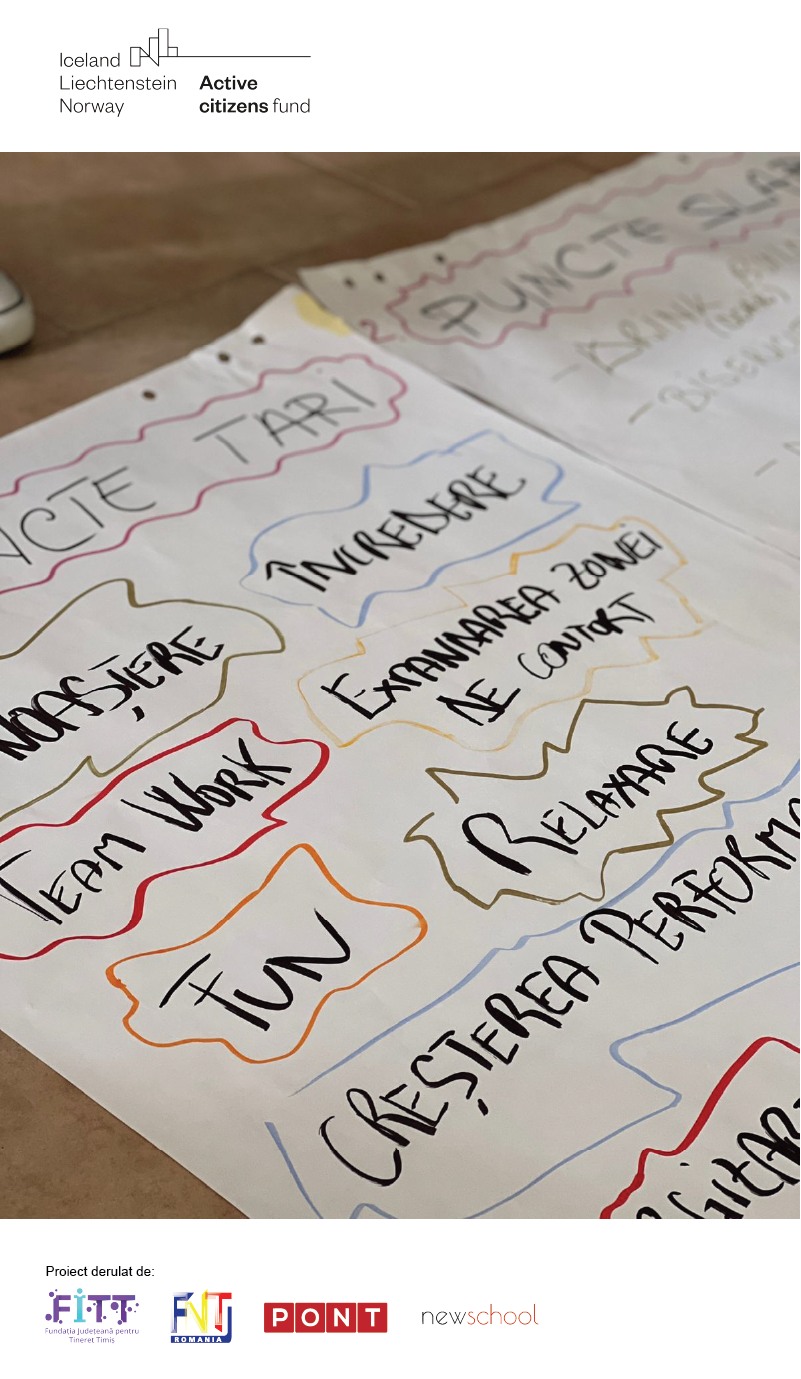 Iceland
Liechtenstein
Norway
Active
citizens fund
PUNCTE SLAB
2.
- DRINK
(
-
-
NCTE TARI
ÎNCREDERE
EXPANDAREA ZONEI
DE CONFORT
NOAȘTERE
TEAM WORK
RELAXARE
FUN
CREȘTEREA PERFORMA
Proiect derulat de:
FITT
Fundația Județeană pentru
Tineret Timiș
FNT
ROMANIA
PONT
newschool